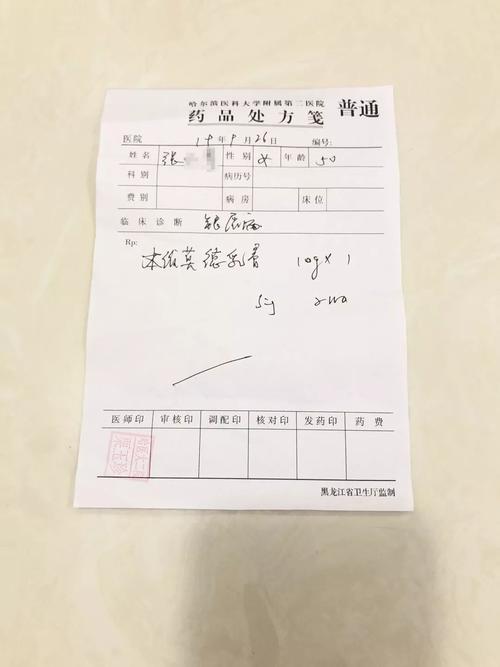 哈尔滨医科大学附属第二医院
药品处方笺 普通
医院 19年9月26日 编号:
姓名 张 性别 女 年龄 50
科别 病历号
费别 病房 床位
临床诊断 银屑病
Rp:
本维莫德乳膏 10g×1
Sig
医师印 审核印 调配印 核对印 发药印 药费
黑龙江省卫生厅监制